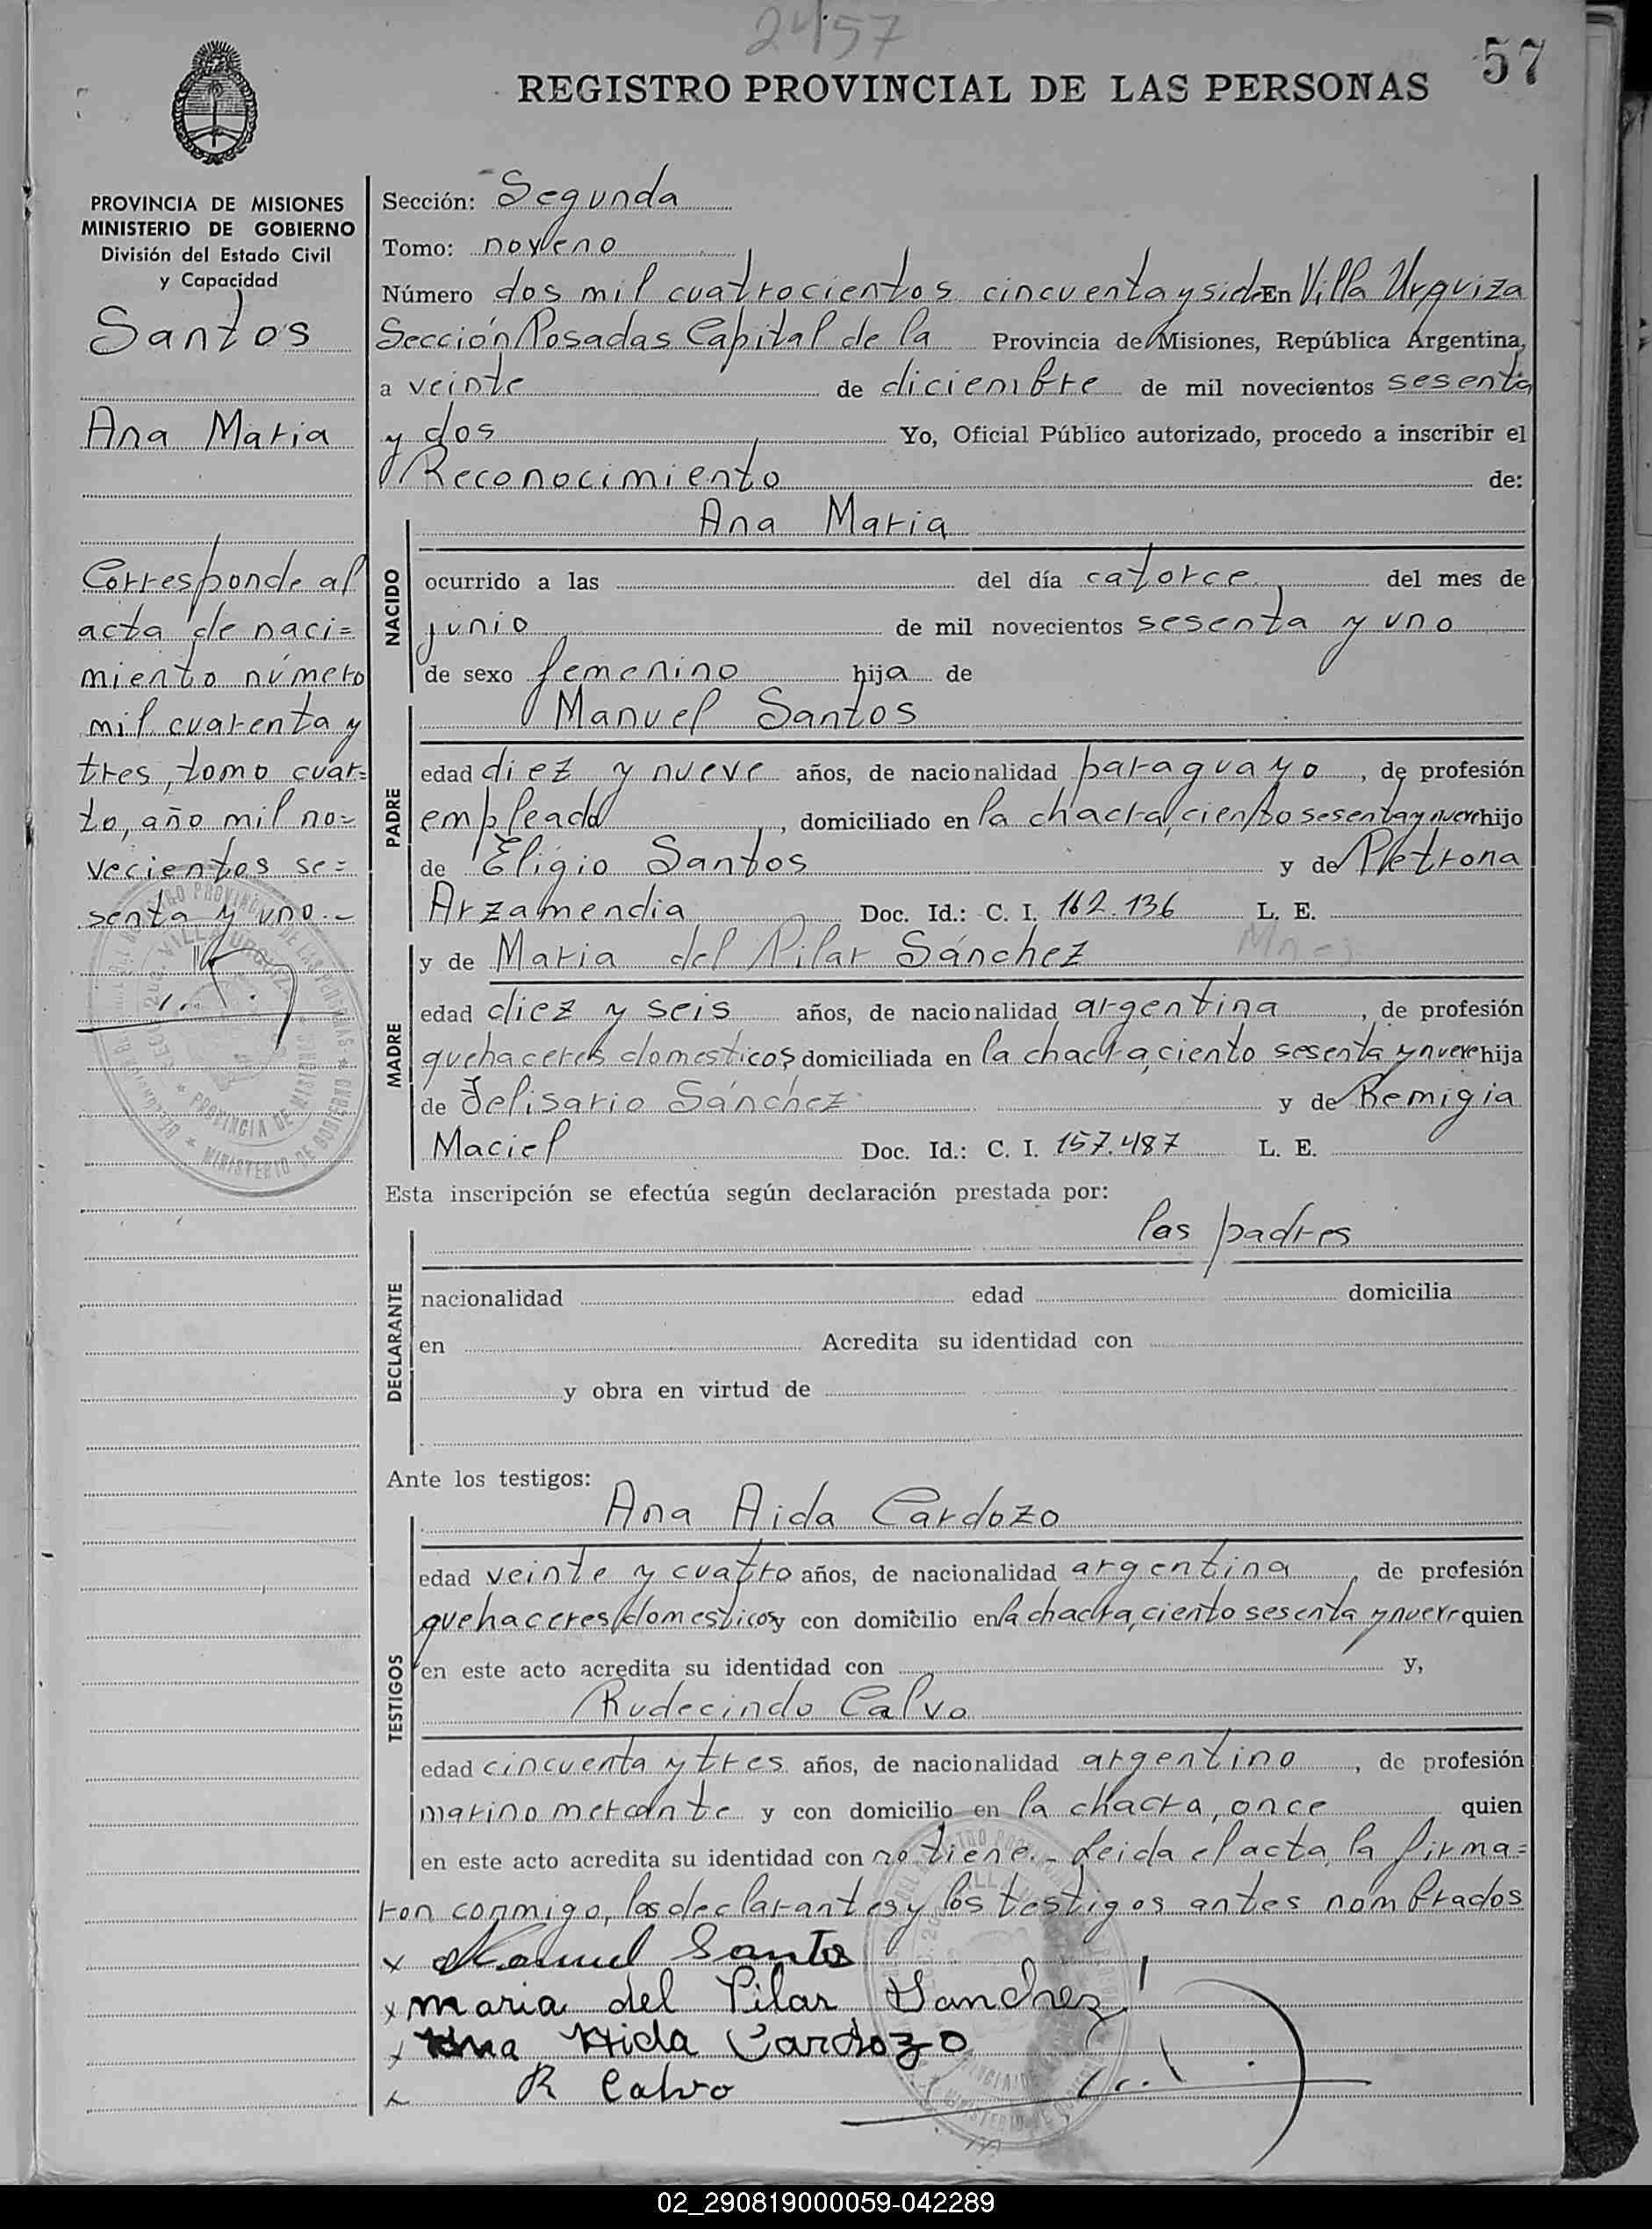 2457
57
REGISTRO PROVINCIAL DE LAS PERSONAS
PROVINCIA DE MISIONES
MINISTERIO DE GOBIERNO
División del Estado Civil
y Capacidad
Santos
Ana Maria
Corresponde al
acta de naci=
miento número
mil cuarenta y
tres, tomo cuar=
to, año mil no=
vecientos se=
senta y uno.-
Sección: Segunda
Tomo: noveno
Número dos mil cuatrocientos cincuenta y siete En Villa Urquiza
Sección Posadas Capital de la Provincia de Misiones, República Argentina,
a veinte de diciembre de mil novecientos sesenta
y dos Yo, Oficial Público autorizado, procedo a inscribir el
Reconocimiento de:
NACIDO
Ana Maria
ocurrido a las del día catorce del mes de
junio de mil novecientos sesenta y uno
de sexo femenino hija de
PADRE
Manuel Santos
edad diez y nueve años, de nacionalidad paraguayo, de profesión
empleado, domiciliado en la chacra, ciento sesenta y nueve hijo
de Eligio Santos y de Petrona
Arzamendia Doc. Id.: C. I. 162.136 L. E.
MADRE
y de Maria del Pilar Sánchez
edad diez y seis años, de nacionalidad argentina, de profesión
quehaceres domesticos domiciliada en la chacra, ciento sesenta y nueve hija
de Felisario Sánchez y de Remigia
Maciel Doc. Id.: C. I. 157.487 L. E.
Esta inscripción se efectúa según declaración prestada por:
DECLARANTE
los padres
nacionalidad edad domicilia
en Acredita su identidad con
y obra en virtud de
Ante los testigos:
TESTIGOS
Ana Aida Cardozo
edad veinte y cuatro años, de nacionalidad argentina, de profesión
quehaceres domesticos y con domicilio en la chacra, ciento sesenta y nueve quien
en este acto acredita su identidad con y,
Rudecindo Calvo
edad cincuenta y tres años, de nacionalidad argentino, de profesión
marino mercante y con domicilio en la chacra, once quien
en este acto acredita su identidad con no tiene.- Leida el acta, la firma=
ron conmigo, los declarantes y los testigos antes nombrados
x Manuel Santos
x maria del Pilar Sanchez
x Ana Aida Cardozo
x R Calvo
02_290819000059-042289